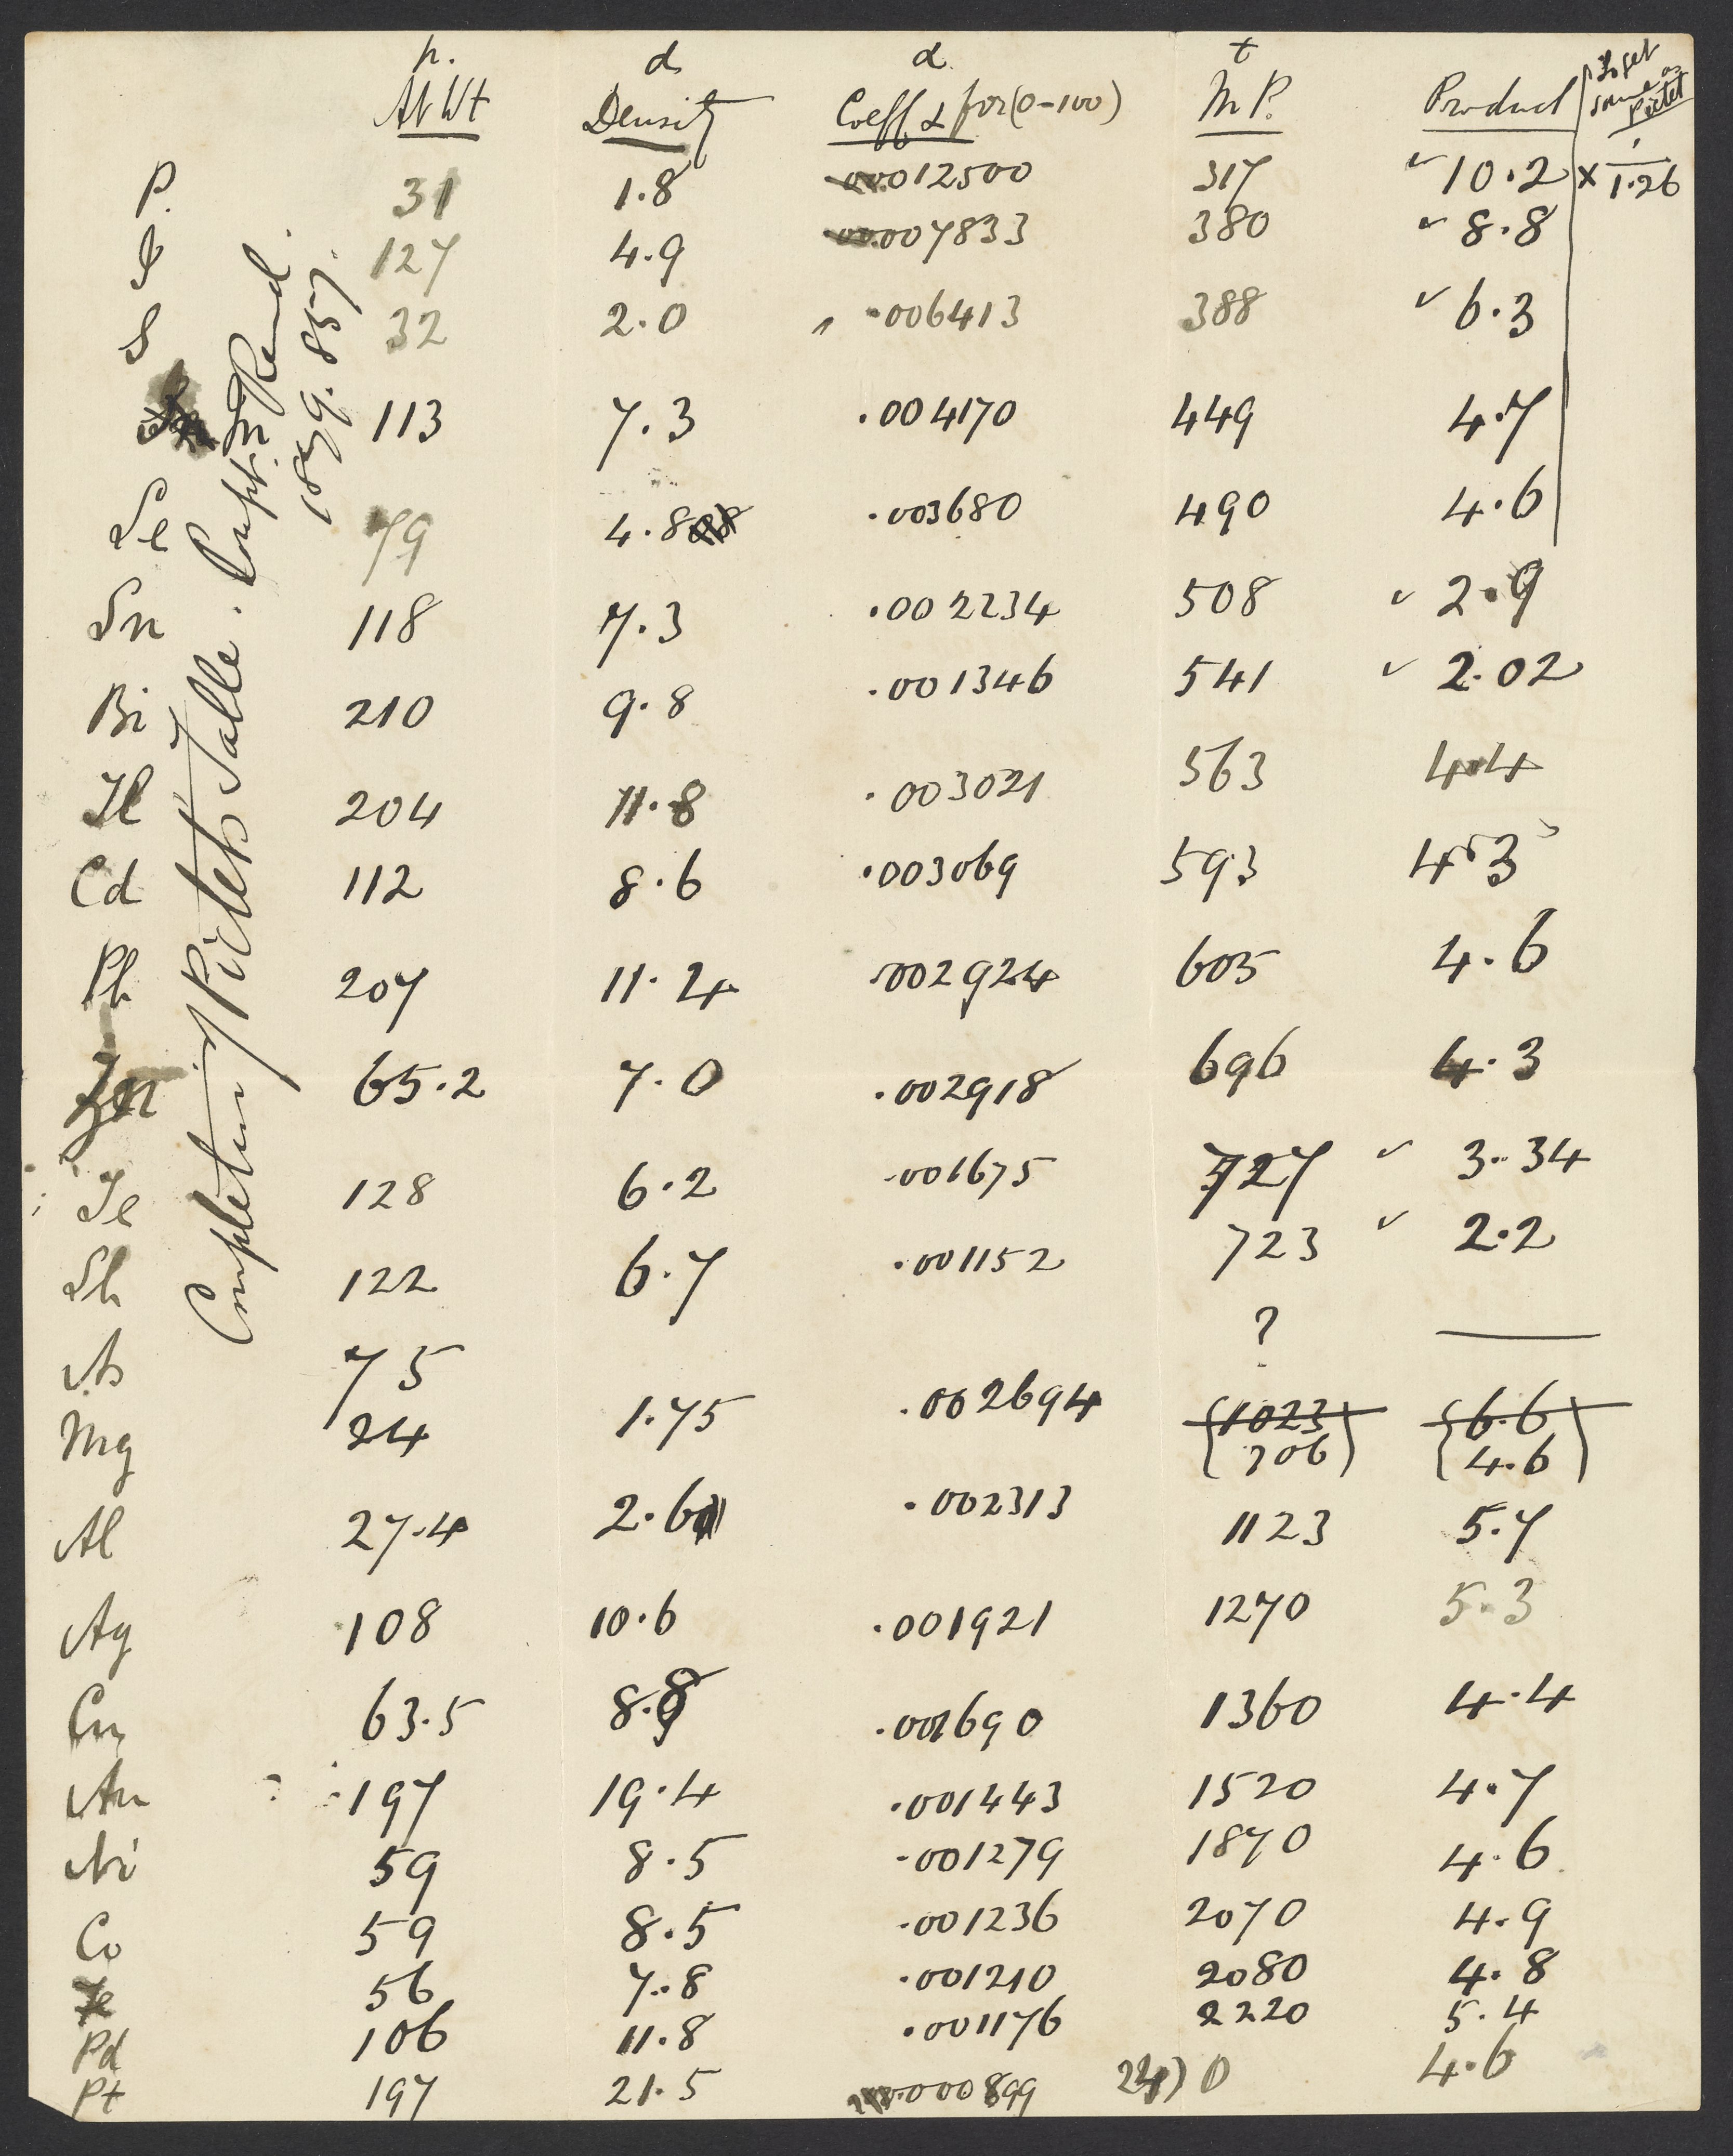 p. d α t
At Wt Density Coeff α for (0–100) M P. Product To get same as Pictet
P. 31 1.8 .00012500 317 ✓ 10.2 × 1/1.26
I 127 4.9 .00007833 380 ✓ 8.8
S 32 2.0 .006413 388 ✓ 6.3
In 113 7.3 .004170 449 4.7
Se 79 4.8 .003680 490 4.6
Sn 118 7.3 .002234 508 ✓ 2.9
Bi 210 9.8 .001346 541 ✓ 2.02
Tl 204 11.8 .003021 563 4.4
Cd 112 8.6 .003069 593 4.3
Pb 207 11.4 .002924 605 4.6
Zn 65.2 7.0 .002918 696 4.3
Te 128 6.2 .001675 727 ✓ 3.34
Sb 122 6.7 .001152 723 ✓ 2.2
As 75 ? —
Mg 24 1.75 .002694 1023 6.6
706 4.6
Al 27.4 2.6 .002313 1123 5.7
Ag 108 10.6 .001921 1270 5.3
Cu 63.5 8.8 .001690 1360 4.4
Au 197 19.4 .001443 1520 4.7
Ni 59 8.5 .001279 1870 4.6
Co 59 8.5 .001236 2070 4.9
Fe 56 7.8 .001210 2080 4.8
Pd 106 11.8 .001176 2220 5.4
Pt 197 21.5 .000899 4.6
Completing Pictet's Table. Compt. Rend.
1879. 857.